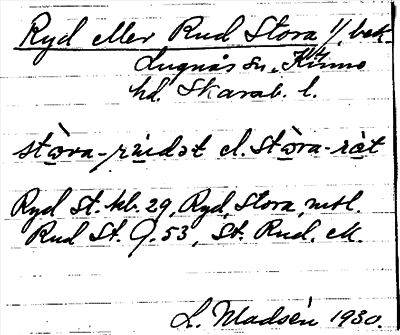 Ryd eller Rud Stora 1/1, bek.
Lugnås sn, Kinne
hd. Skarab. l.
stωra-rudət el. Stωra-rət
Ryd St. hb. 29, Ryd, Stora, mtl.
Rud St. J. 53, St. Rud. M.
L. Madsén 1930.